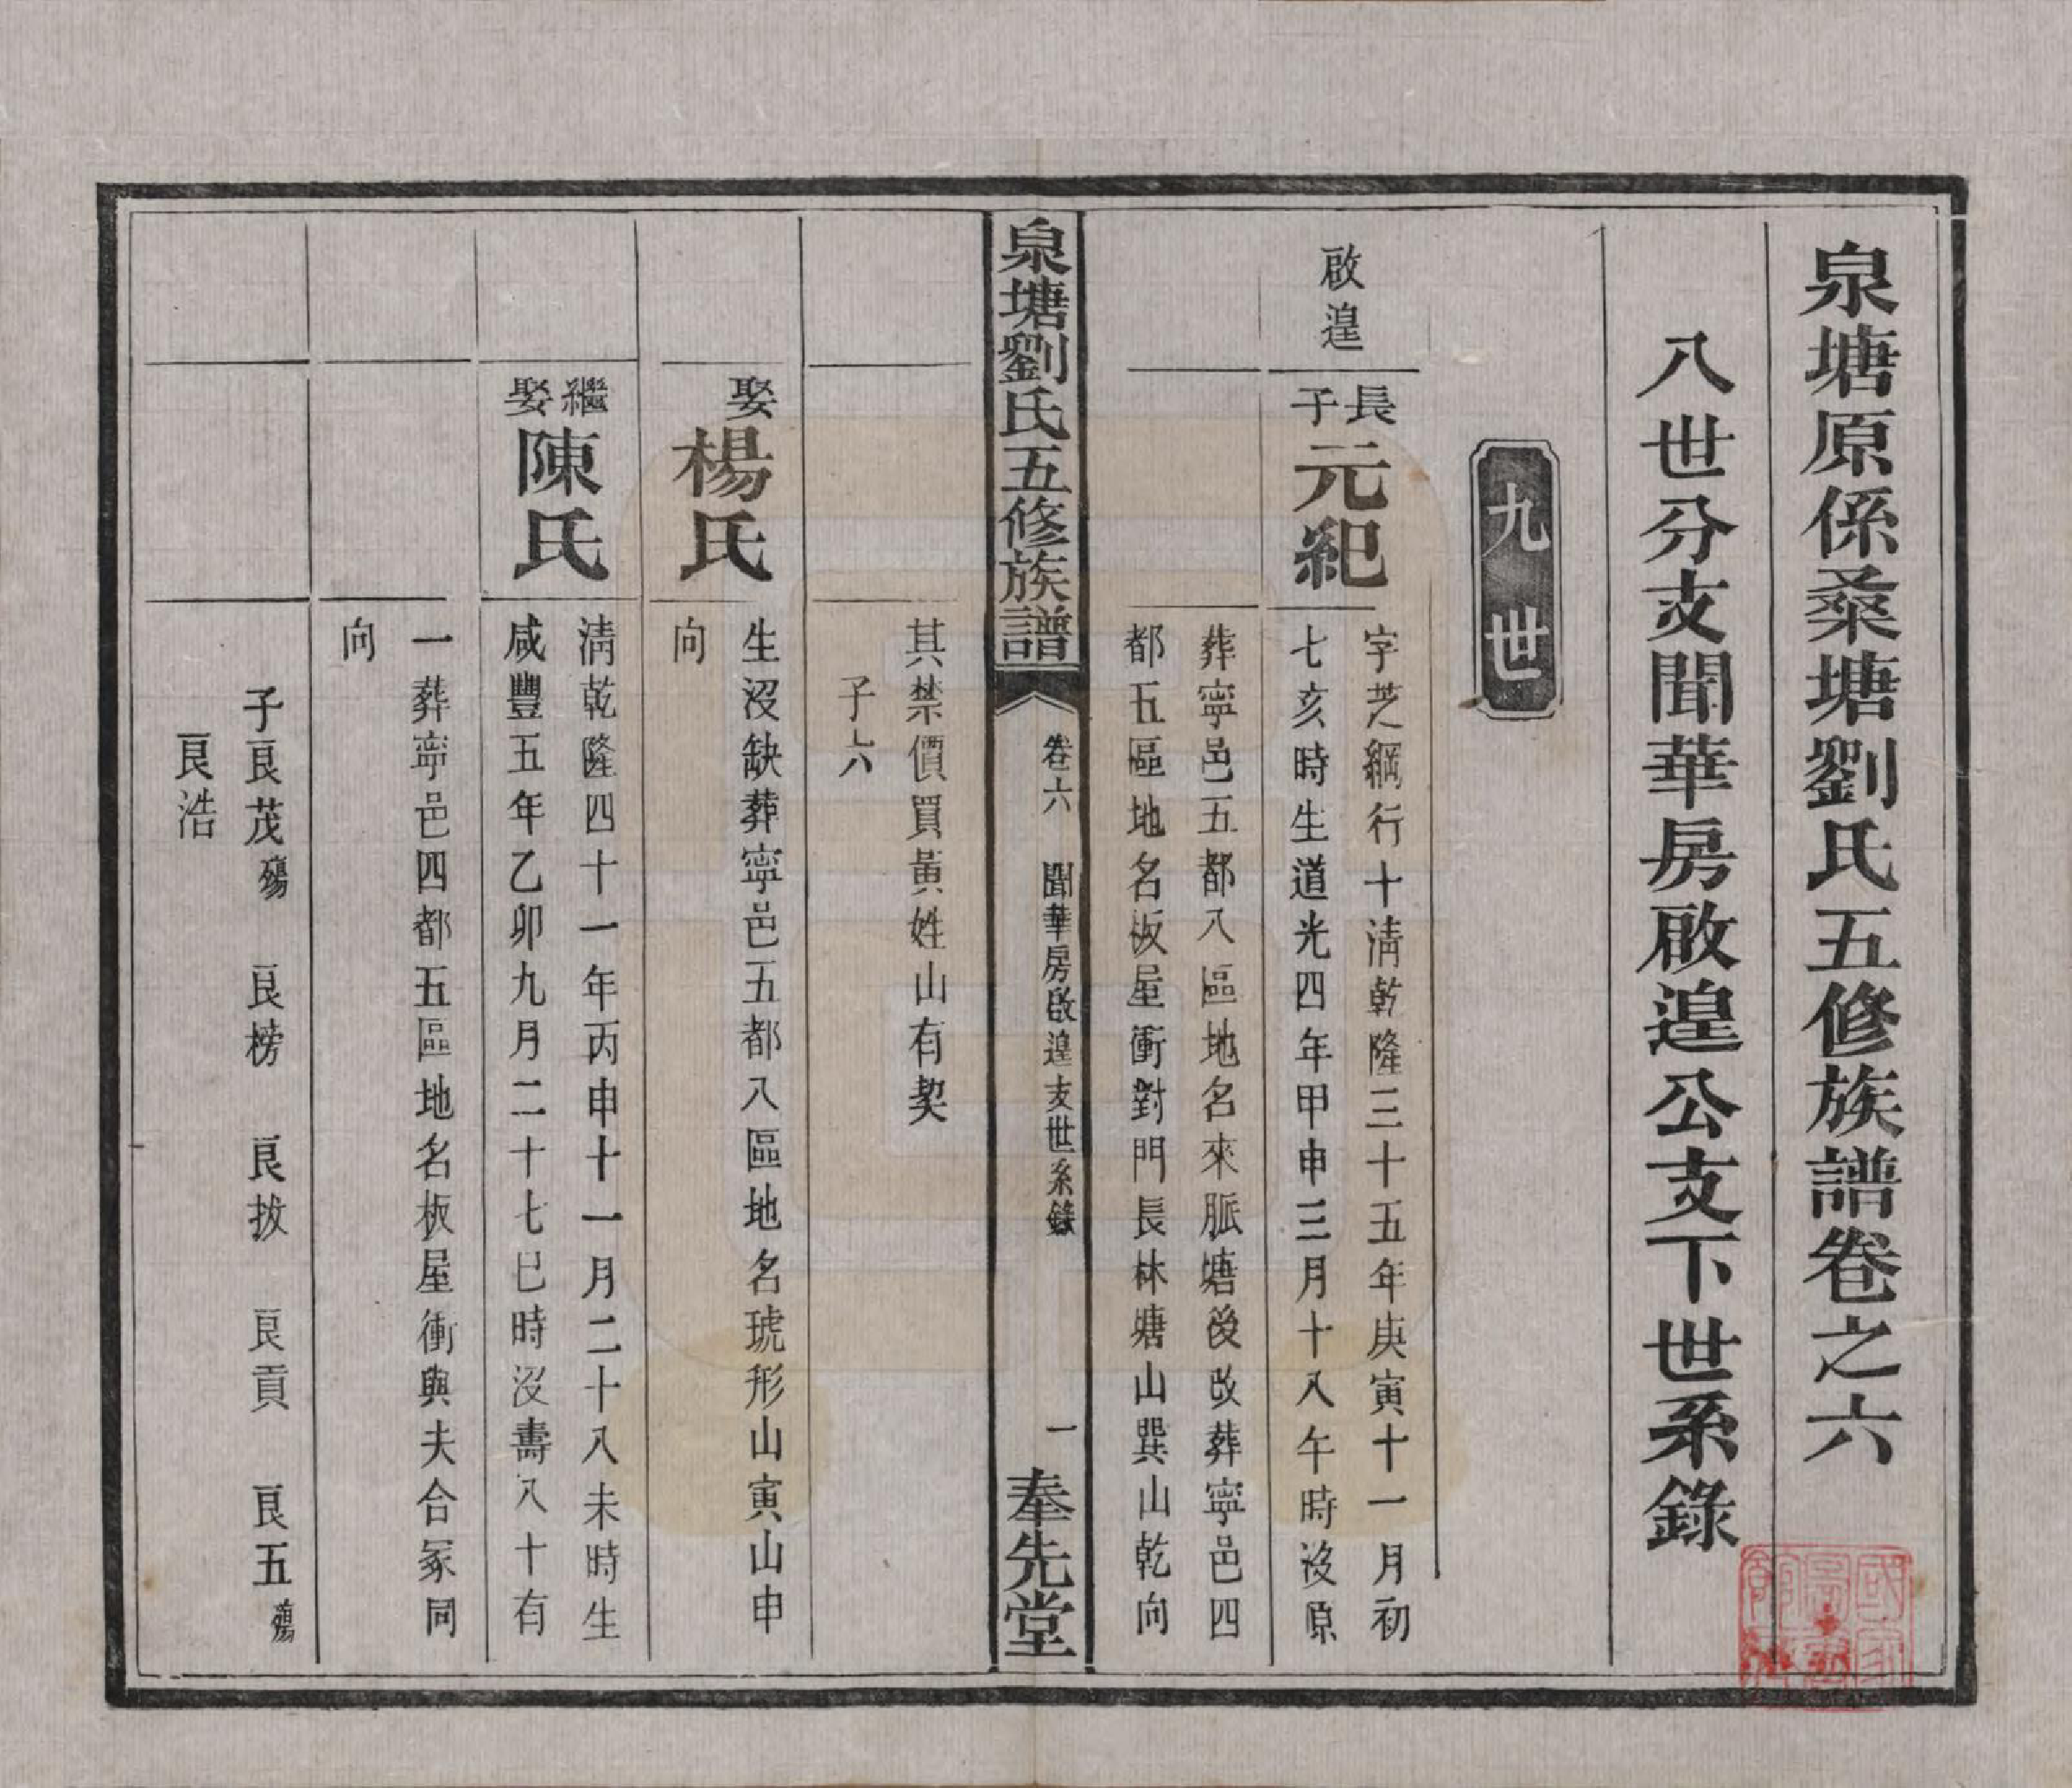 泉塘原係桑塘劉氏五修族譜卷之六
八世分支聞華房啟湟公支下世系錄
九世
啟湟
長子
元紀
字芝綱行十清乾隆三十五年庚寅十一月初
七亥時生道光四年甲申三月十八午時沒原
葬寧邑五都八區地名來脈塘後改葬寧邑四
都五區地名板屋衝對門長林塘山巽山乾向
泉塘劉氏五修族譜
卷六
聞華房啟湟支世系錄
一
奉先堂
其禁價買黃姓山有契
子六
娶
楊氏
生沒缺葬寧邑五都八區地名琥形山寅山申
向
繼娶
陳氏
清乾隆四十一年丙申十一月二十八未時生
咸豐五年乙卯九月二十七巳時沒壽八十有
一葬寧邑四都五區地名板屋衝與夫合冢同
向
子良茂殤 良榜 良拔 良貢 良五殤
良浩